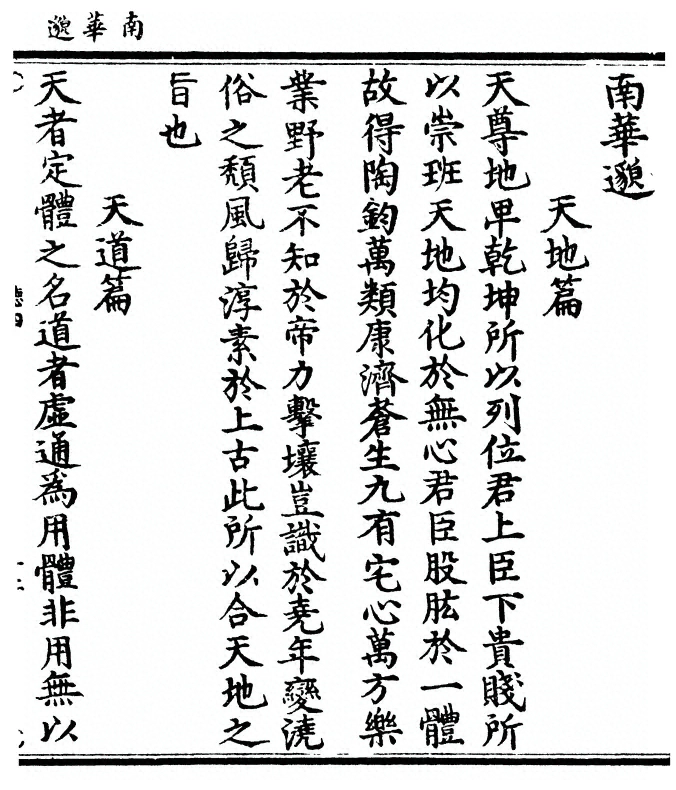 南華邈
南華邈
天地篇
天尊地卑乾坤所以列位君上臣下貴賤所
以崇班天地均化於無心君臣股肱於一體
故得陶鈞萬類康濟蒼生九有宅心萬方樂
業野老不知於帝力擊壤豈識於堯年變澆
俗之頹風歸淳素於上古此所以合天地之
旨也
天道篇
天者定體之名道者虛通爲用體非用無以